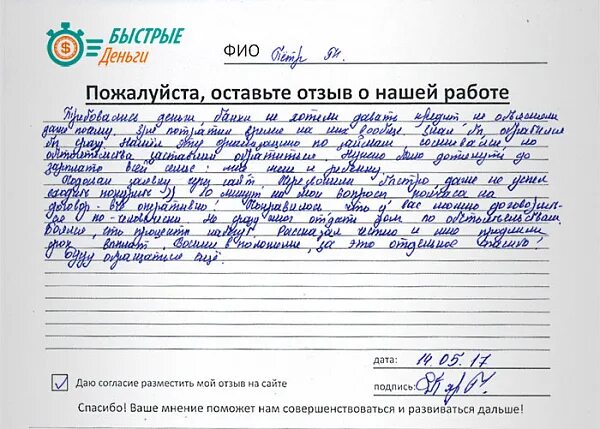 БЫСТРЫЕ
Деньги
ФИО Пётр Як.
Пожалуйста, оставьте отзыв о нашей работе
Требовались деньги, банки не хотели давать кредит не объясняли
даже почему. Зря потратил время на них вообще. обратился
бы сразу. Нашёл эту организацию по займам сомневался, но
обстоятельства заставили обратиться. Нужно было дотянуть до
зарплаты всей семье: мне жене и ребёнку.
Подавал заявку через сайт. Перезвонили быстро, даже не успел
)) 10 минут на мои вопросы подписал
договор - всё оперативно! Понравилось что у вас можно договорить-
ся по-человечески. Не смог отдать долг по обстоятельствам.
Боялся, что проценты набегут. Рассказал честно и мне продлили
срок выплат. Вошли в положение, за это отдельное спасибо!
Буду обращаться ещё.
дата: 14.05.17
Даю согласие разместить мой отзыв на сайте
подпись:
Спасибо! Ваше мнение поможет нам совершенствоваться и развиваться дальше!